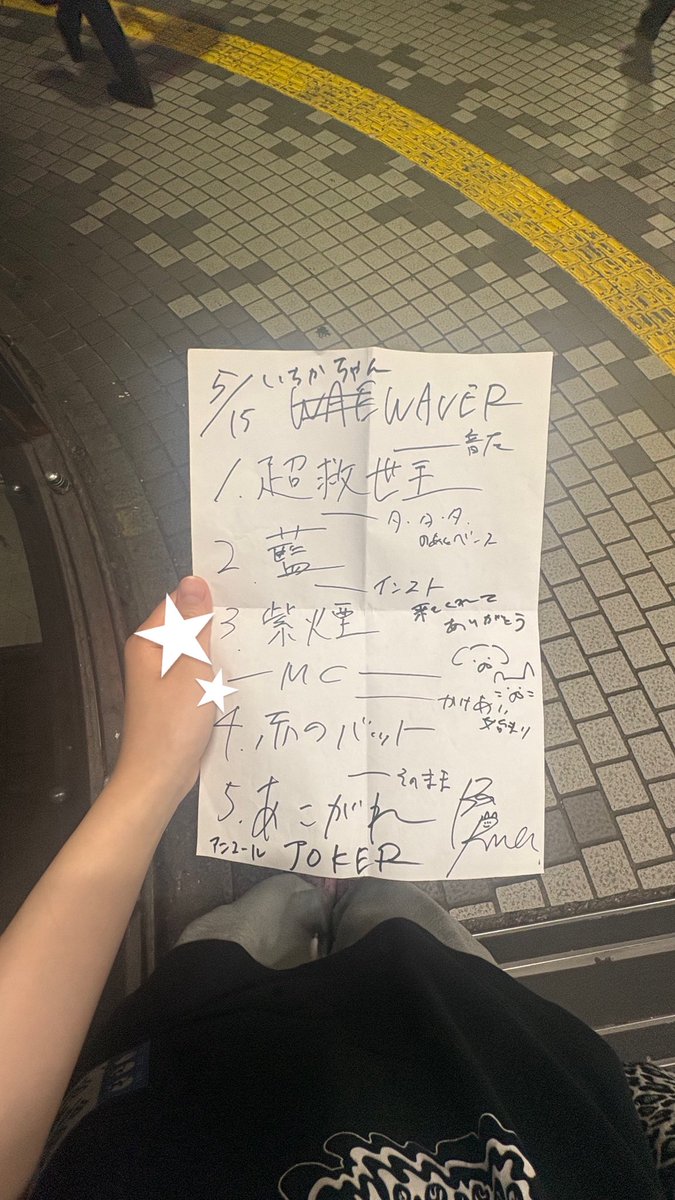 5/15 いちかちゃん
WAVER
音た
1. 超救世主
タ・タ・タ・
のあとベース
2. 藍
インスト
来てくれて
ありがとう
3. 紫煙
MC
かけあい
4. 赤のバット
そのまま
5. あこがれ
アンコール JOKER